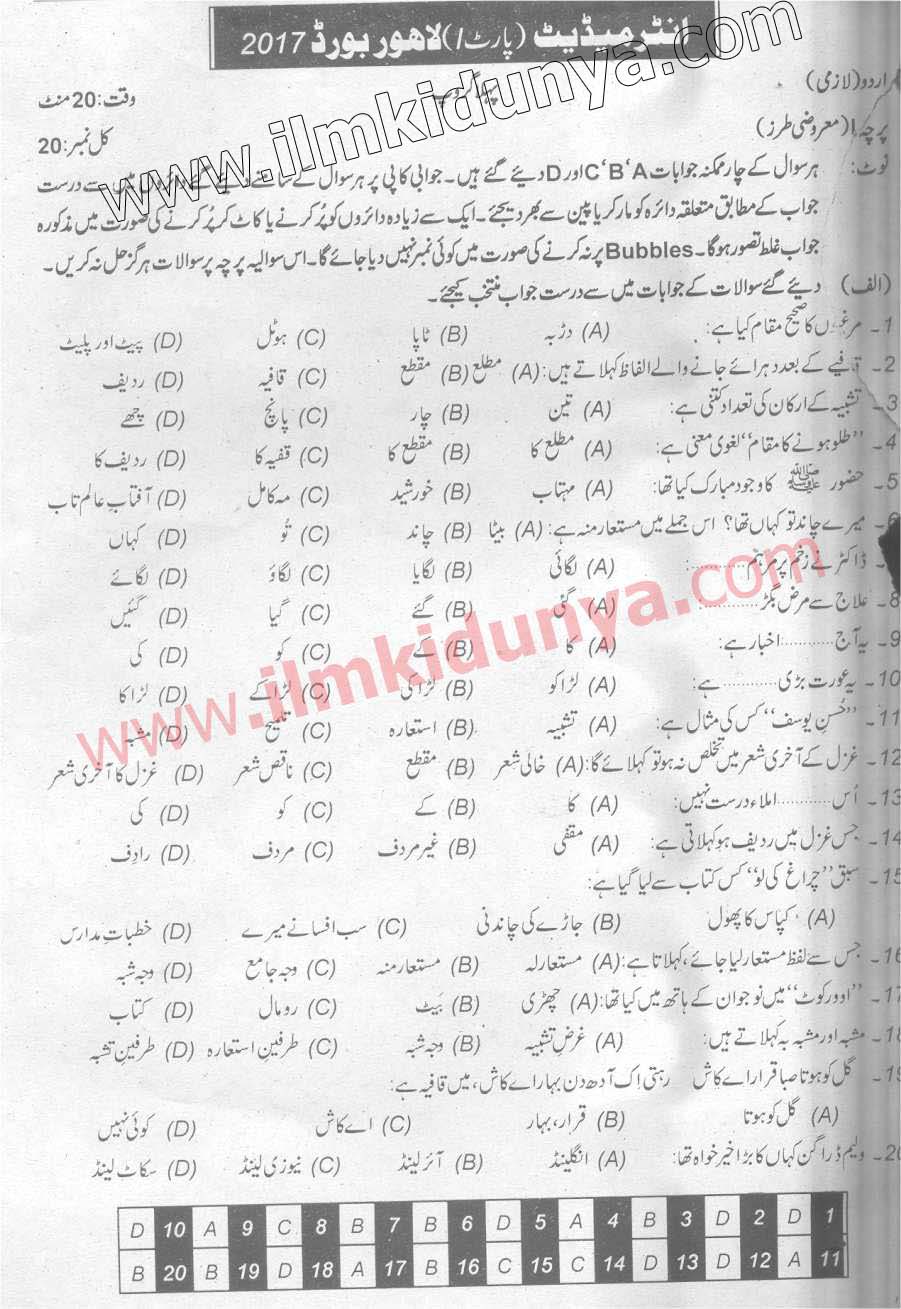 انٹرمیڈیٹ (پارٹ I) لاھور بورڈ 2017
اردو (لازمی) پہلا گروپ وقت: 20 منٹ
پرچہ I (معروضی طرز) کل نمبر: 20
نوٹ: ہر سوال کے چار ممکنہ جوابات A‘ B‘ C اور D دیئے گئے ہیں۔ جوابی کاپی پر ہر سوال کے سامنے دیئے گئے دائروں میں سے درست
جواب کے مطابق متعلقہ دائرہ کو مارکر یا پین سے بھر دیجئے۔ ایک سے زیادہ دائروں کو پُر کرنے یا کاٹ کر پُر کرنے کی صورت میں مذکورہ
جواب غلط تصور ہوگا۔ Bubbles پر نہ کرنے کی صورت میں کوئی نمبر نہیں دیا جائے گا۔ اس سوالیہ پرچہ پر سوالات ہرگز حل نہ کریں۔
(الف) دیئے گئے سوالات کے جوابات میں سے درست جواب منتخب کیجئے۔
1۔ مرغیوں کا صحیح مقام کیا ہے: (A) دڑبہ (B) ٹاپا (C) ہوٹل (D) پیٹ اور پلیٹ
2۔ قافیے کے بعد دہرائے جانے والے الفاظ کہلاتے ہیں: (A) مطلع (B) مقطع (C) قافیہ (D) ردیف
3۔ تشبیہ کے ارکان کی تعداد کتنی ہے: (A) تین (B) چار (C) پانچ (D) چھے
4۔ ”طلوع ہونے کا مقام“ لغوی معنی ہے: (A) مطلع کا (B) مقطع کا (C) قفیہ کا (D) ردیف کا
5۔ حضور ﷺ کا وجود مبارک کیا تھا: (A) مہتاب (B) خورشید (C) مہ کامل (D) آفتاب عالم تاب
6۔ میرے چاند تو کہاں تھا؟ اس جملے میں مستعار منہ ہے: (A) بیٹا (B) چاند (C) تُو (D) کہاں
۔ ڈاکٹر نے زخم پر مرہم............: (A) لگائی (B) لگایا (C) لگاؤ (D) لگائے
8۔ علاج سے مرض بگڑ............: (A) گئی (B) گئے (C) گیا (D) گئیں
9۔ یہ آج............اخبار ہے: (A) کا (B) کے (C) کو (D) کی
10۔ یہ عورت بڑی............ہے: (A) لڑاکو (B) لڑاکی (C) لڑاکے (D) لڑاکا
11۔ ”حُسنِ یوسف“ کس کی مثال ہے: (A) تشبیہ (B) استعارہ (C) تلمیح (D) مشبہ
12۔ غزل کے آخری شعر میں تخلص نہ ہو تو کہلائے گا: (A) خالی شعر (B) مقطع (C) ناقص شعر (D) غزل کا آخری شعر
13۔ اُس............املاء درست نہیں: (A) کا (B) کے (C) کو (D) کی
14۔ جس غزل میں ردیف ہو کہلاتی ہے: (A) مقفٰی (B) غیر مردف (C) مردف (D) رادِف
15۔ سبق ”چراغ کی لَو“ کس کتاب سے لیا گیا ہے:
(A) کپاس کا پھول (B) جاڑے کی چاندنی (C) سب افسانے میرے (D) خطباتِ مدارس
16۔ جس سے لفظ مستعار لیا جائے، کہلاتا ہے: (A) مستعار لہ (B) مستعار منہ (C) وجہ جامع (D) وجہ شبہ
17۔ ”اوورکوٹ“ میں نوجوان کے ہاتھ میں کیا تھا: (A) چھڑی (B) ہَیٹ (C) رومال (D) کتاب
18۔ مشبہ اور مشبہ بہ کہلاتے ہیں: (A) غرضِ تشبیہ (B) وجہ شبہ (C) طرفینِ استعارہ (D) طرفینِ تشبہ
19۔ گل کو ہوتا صبا قرار اے کاش رہتی اِک آدھ دن بہار اے کاش، میں قافیہ ہے:
(A) گل کو ہوتا (B) قرار، بہار (C) اے کاش (D) کوئی نہیں
20۔ ولیم ڈراگن کہاں کا بڑا خیر خواہ تھا: (A) انگلینڈ (B) آئرلینڈ (C) نیوزی لینڈ (D) سکاٹ لینڈ
1 D 2 D 3 B 4 A 5 D 6 B 7 B 8 C 9 A 10 D
11 A 12 D 13 D 14 C 15 C 16 B 17 A 18 D 19 B 20 B
www.ilmkidunya.com
www.ilmkidunya.com